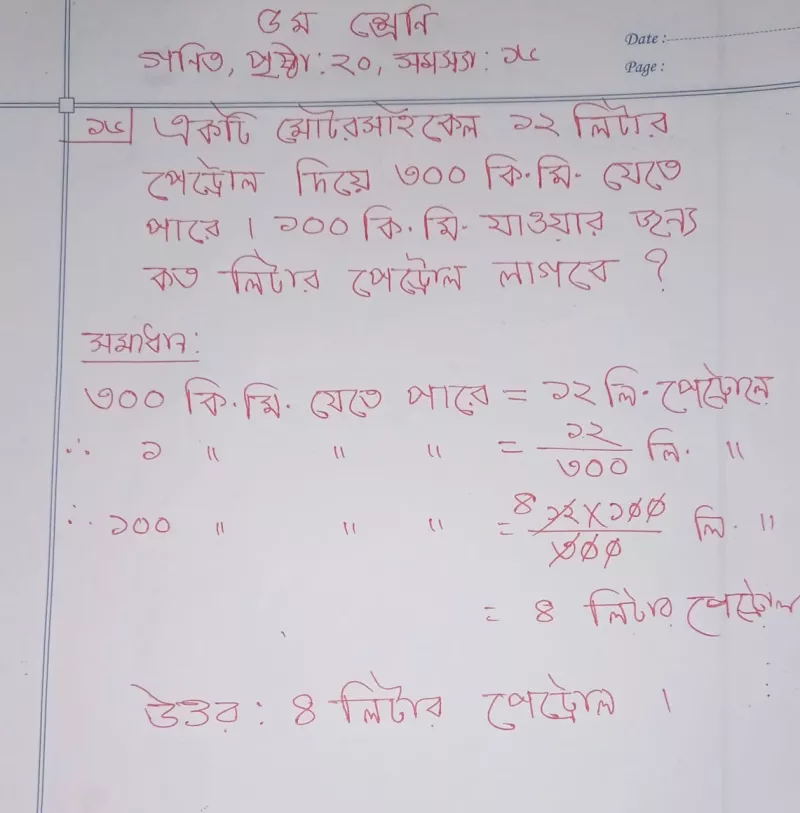 ৫ম শ্রেনি
গনিত, পৃষ্ঠা: ২০, সমস্যা: ১৫
Date :
Page :
১৫| একটি মোটরসাইকেল ১২ লিটার
পেট্রোল দিয়ে ৩০০ কি.মি. যেতে
পারে । ১০০ কি. মি. যাওয়ার জন্য
কত লিটার পেট্রোল লাগবে ?
সমাধান:
৩০০ কি.মি. যেতে পারে = ১২ লি. পেট্রোলে
∴ ১ " " " = ১২/৩০০ লি. "
∴ ১০০ " " " = ৪ ১২×১০০/৩০০ লি. "
= ৪ লিটার পেট্রোল
উত্তর: ৪ লিটার পেট্রোল ।